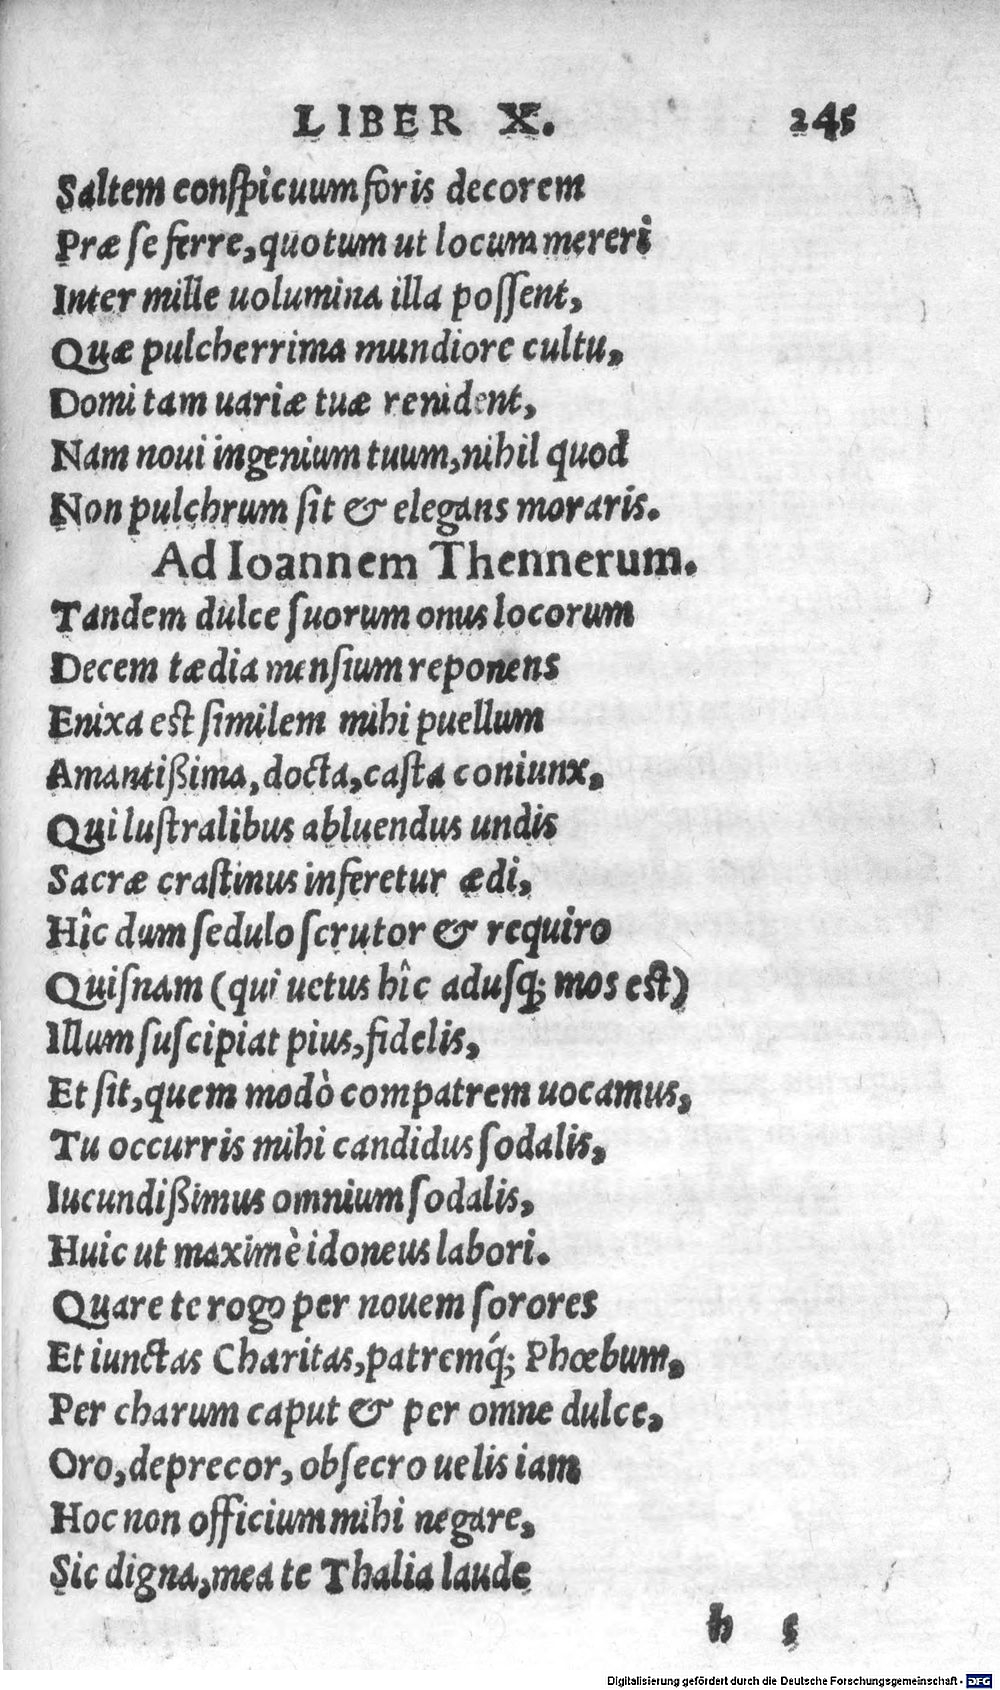 LIBER X. 245
Saltem conſpicuum foris decorem
Præ ſe ferre, quotum ut locum mereri
Inter mille uolumina illa poſſent,
Quæ pulcherrima mundiore cultu,
Domi tam uariæ tuæ renident,
Nam noui ingenium tuum, nihil quod
Non pulchrum ſit & elegans moraris.
Ad Ioannem Thennerum.
Tandem dulce ſuorum onus locorum
Decem tædia menſium reponens
Enixa est ſimilem mihi puellum
Amantißima, docta, caſta coniunx,
Qui luſtralibus abluendus undis
Sacræ craſtinus inferetur ædi,
Hîc dum ſedulo ſcrutor & requiro
Quiſnam (qui uetus hîc aduſq; mos eſt)
Illum ſuſcipiat pius, fidelis,
Et ſit, quem modò compatrem uocamus,
Tu occurris mihi candidus ſodalis,
Iucundißimus omnium ſodalis,
Huic ut maximè idoneus labori.
Quare te rogo per nouem ſorores
Et iunctas Charitas, patremq́; Phœbum,
Per charum caput & per omne dulce,
Oro, deprecor, obſecro uelis iam
Hoc non officium mihi negare,
Sic digna, mea te Thalia laude
h 5
Digitalisierung gefördert durch die Deutsche Forschungsgemeinschaft - DFG